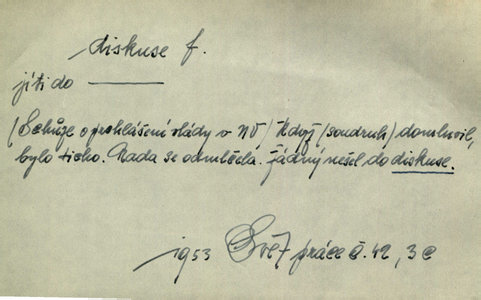 diskuse f.
jíti do ———
(Schůze o prohlášení vlády v NV) Když (soudruh) domluvil,
bylo ticho. Rada se odmlčela. Žádný nešel do diskuse.
1953 Svět práce č. 42, 3